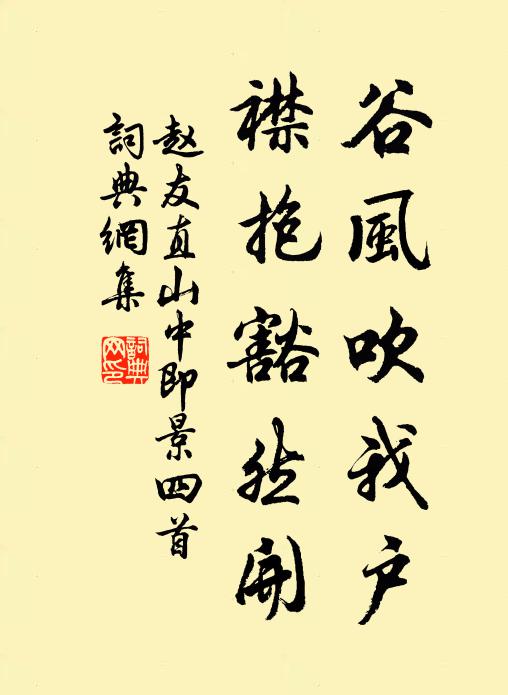 谷風吹我戶
襟抱豁然開
赵友直山中即景四首
詞典網集
詞典網印